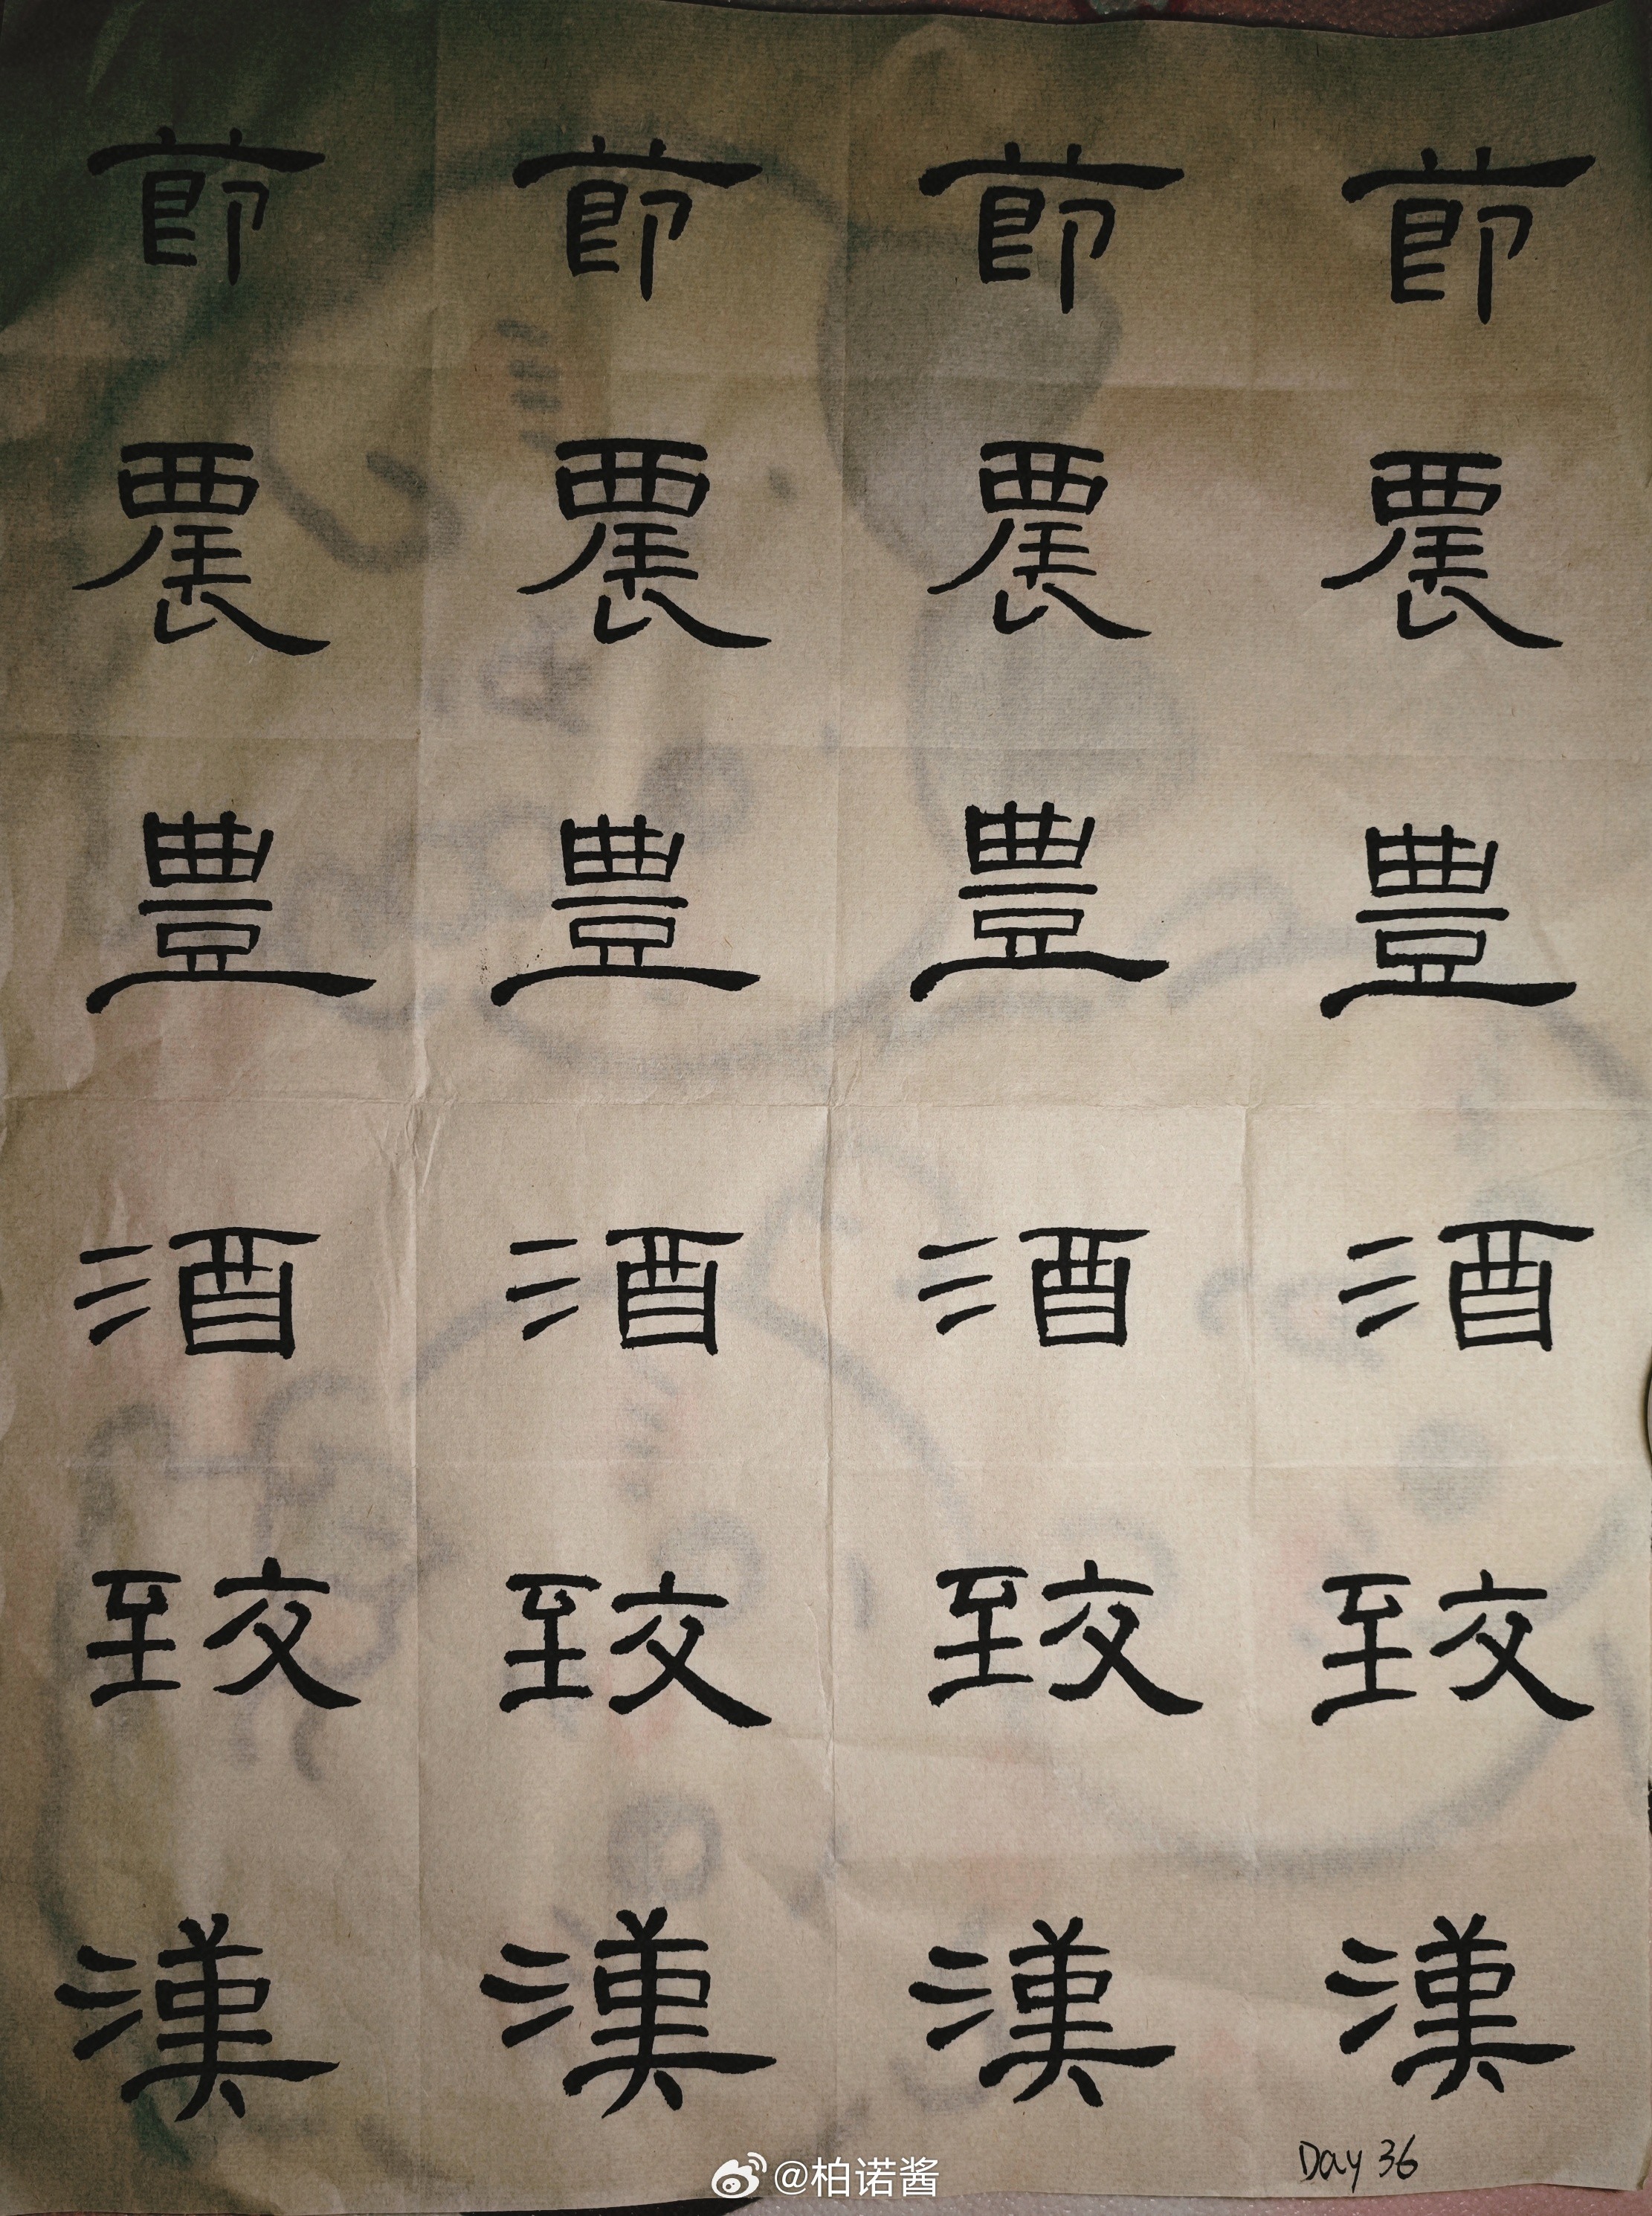 節 節 節 節
農 農 農 農
豊 豊 豊 豊
酒 酒 酒 酒
致 致 致 致
漢 漢 漢 漢
Day 36
@柏诺酱